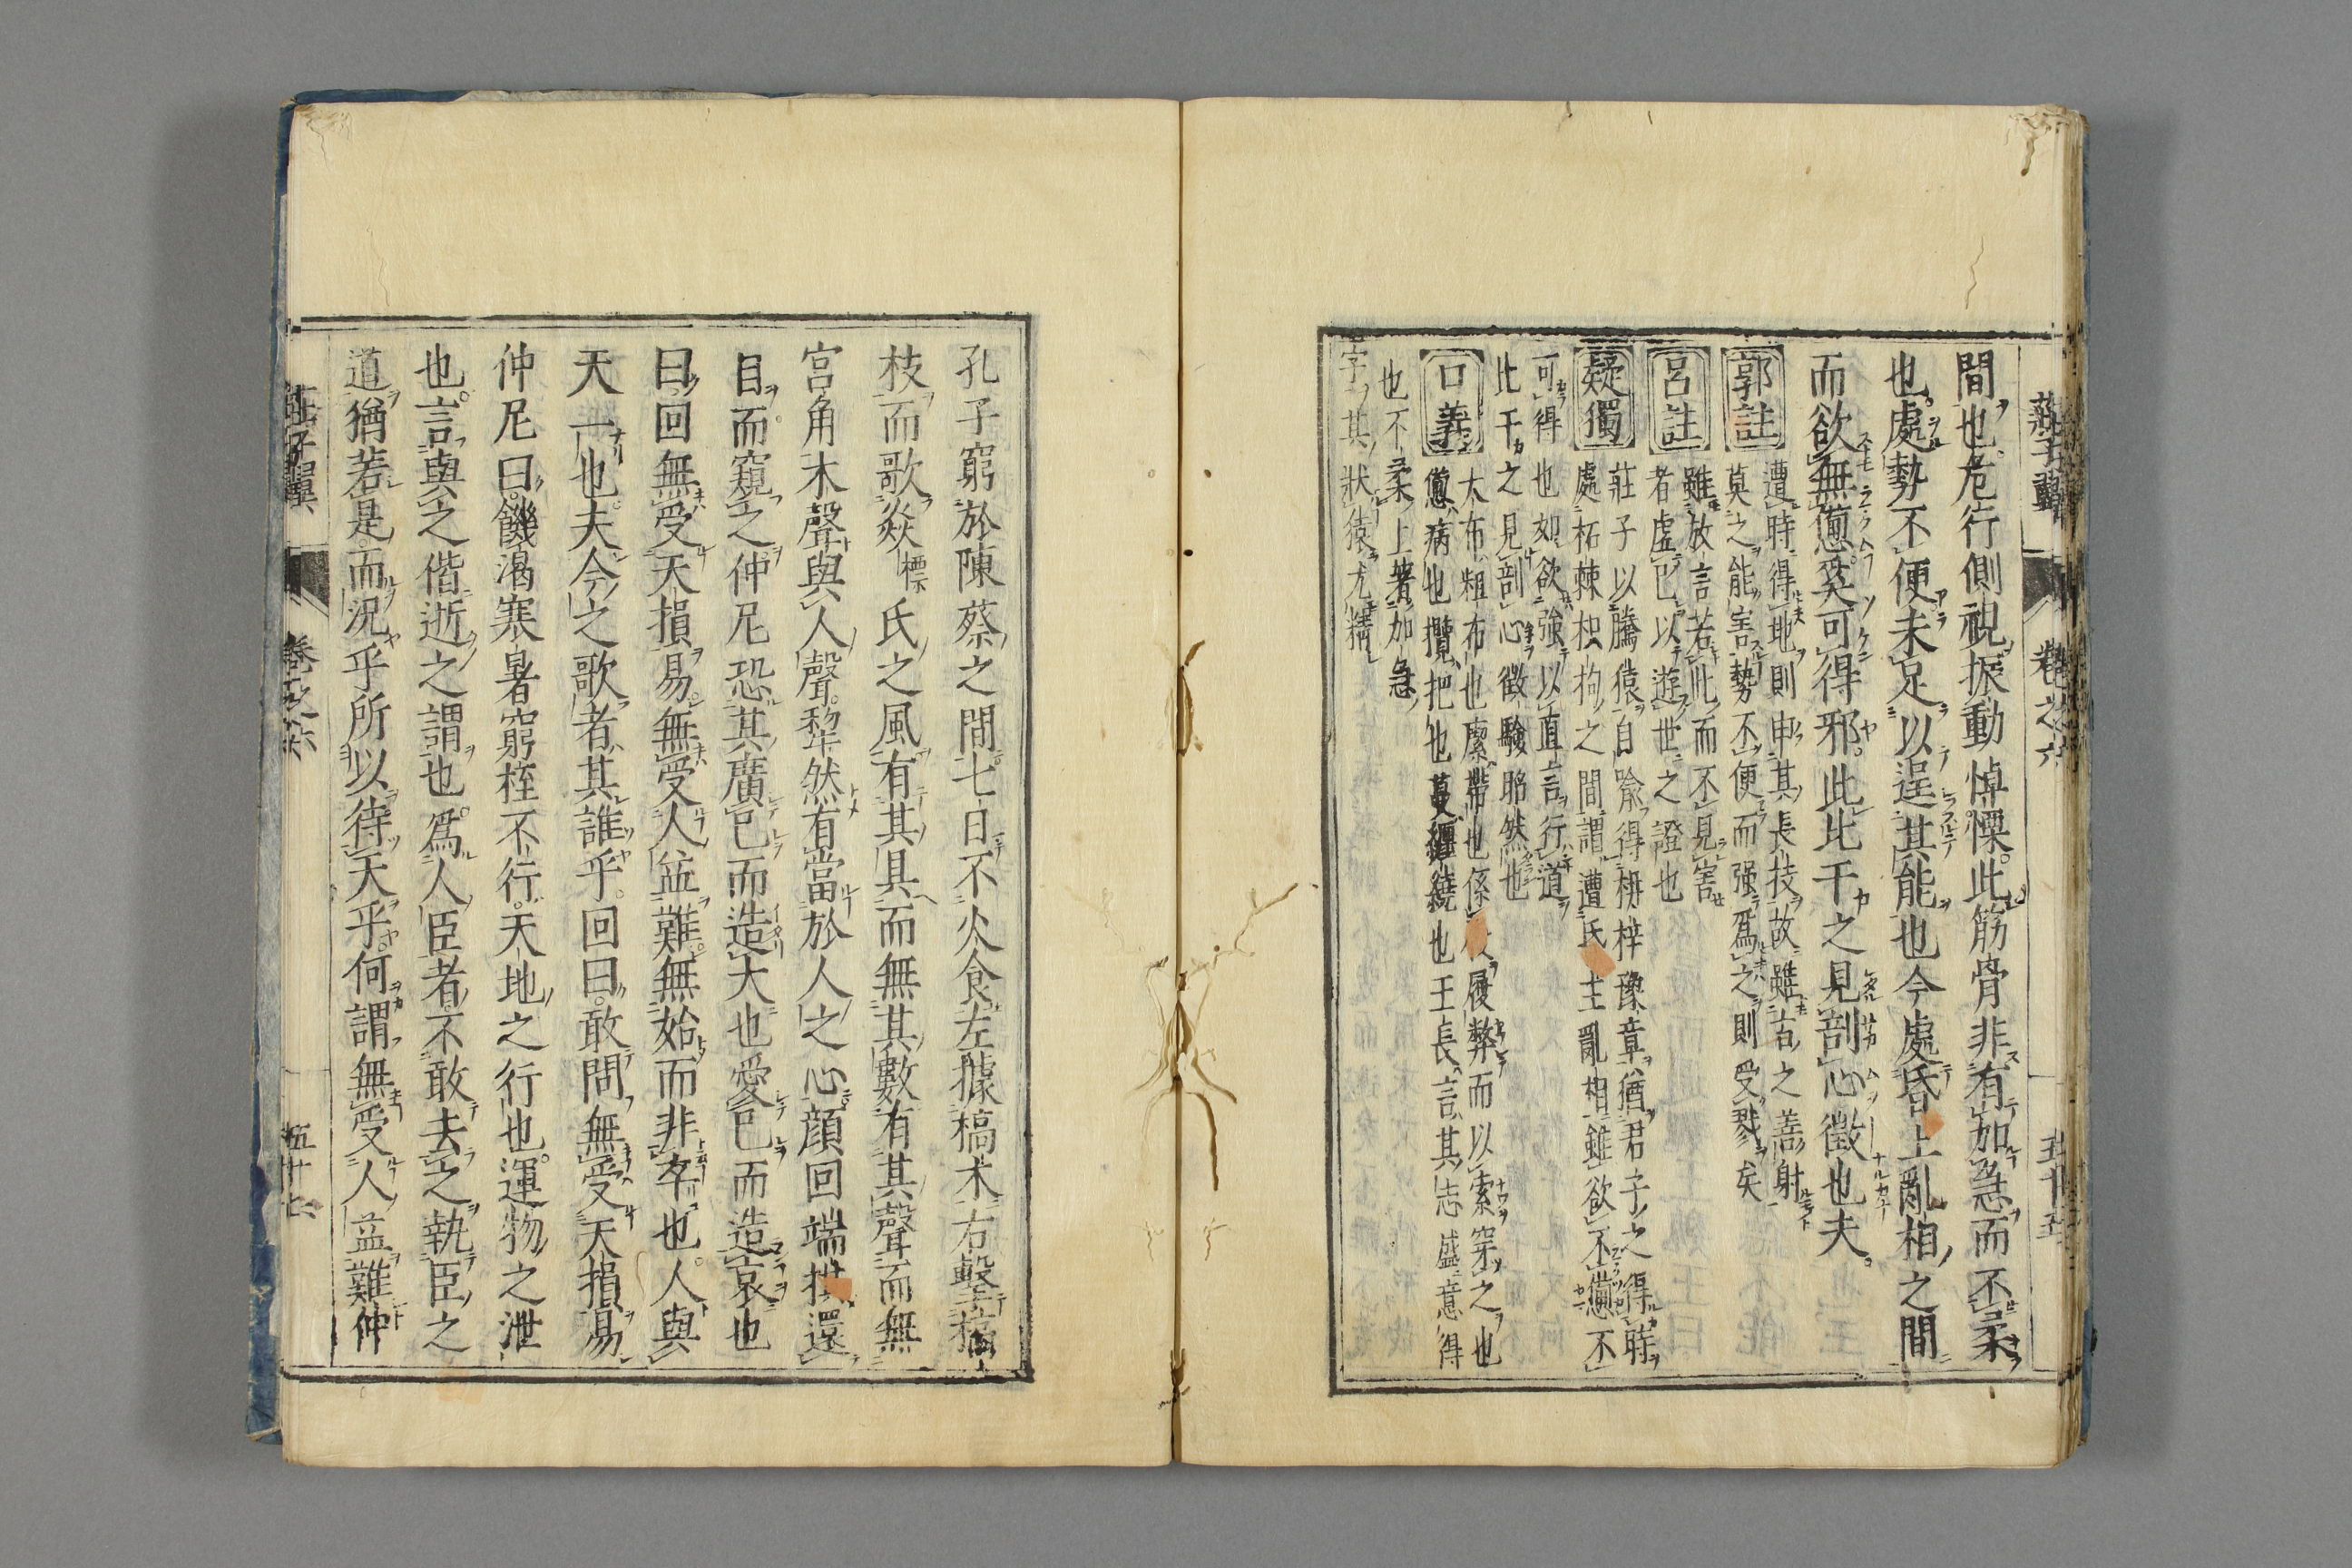 莊子翼 卷之六 五十五
間也危行側視振動悼慄此筋骨非有加急而不柔
也處勢不便未足以逞其能也今處昏上亂相之間
而欲無憊奚可得邪此比干之見剖心徵也夫
郭註 遭時得地則申其長技故雖古之善射
莫之能害勢不便而强爲之則受戮矣
呂註 雖放言若此而不見害
者虛己以遊世之證也
疑獨 莊子以騰猿自喻得枬梓豫章猶君子之得時
處柘棘枳拘之間謂遭氏主亂相雖欲不憊不
可得也如欲強以直言行道
比干之見剖心徵驗昭然也
口義 大布粗布也縻帶也係履履弊而以索穿之也
憊病也攬把也蔓纏繞也王長言其志盛意得
也不柔上著加急
字其狀猿尤精
孔子窮於陳蔡之間七日不火食左據槁木右擊槁
枝而歌猋標氏之風有其具而無其數有其聲而無
宮角木聲與人聲犂然有當於人之心顔回端拱還
目而窺之仲尼恐其廣己而造大也愛己而造哀也
曰回無受天損易無受人益難無始而非卒也人與
天一也夫今之歌者其誰乎回曰敢問無受天損易
仲尼曰饑渴寒暑窮桎不行天地之行也運物之泄
也言與之偕逝之謂也爲人臣者不敢去之執臣之
道猶若是而況乎所以待天乎何謂無受人益難仲
莊子翼 卷之六 五十六